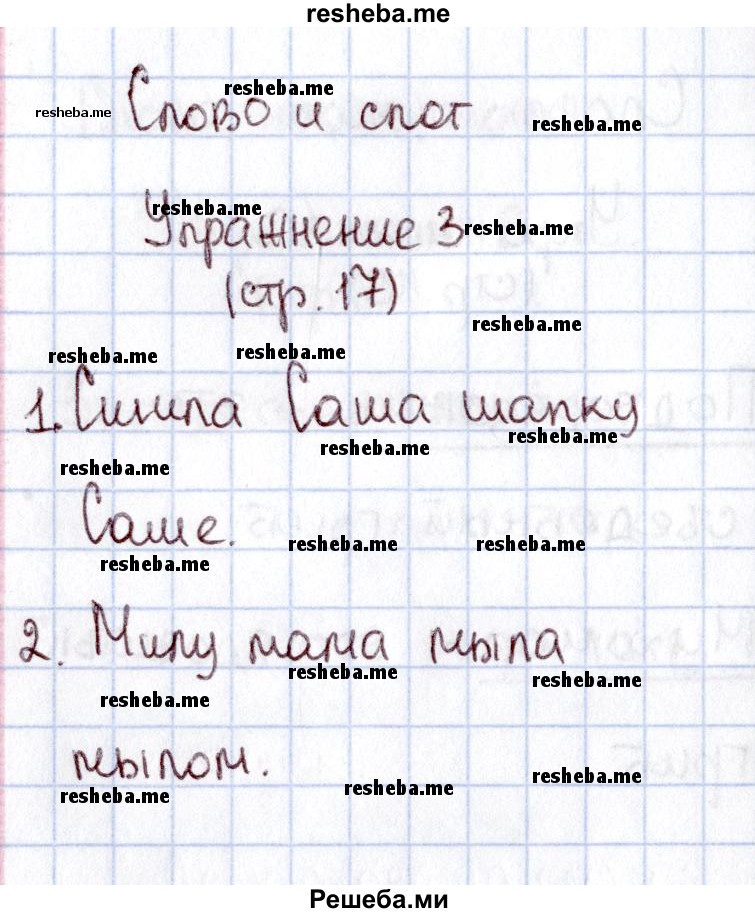 resheba.me
resheba.me
resheba.me
Слово и слог
resheba.me
resheba.me
Упражнение 3
resheba.me
(стр. 17)
resheba.me
resheba.me
resheba.me
1. Сшила Саша шапку
resheba.me
resheba.me
resheba.me
Саше.
resheba.me
resheba.me
resheba.me
2. Милу мама мыла
resheba.me
resheba.me
resheba.me
мылом.
resheba.me
resheba.me
resheba.me
Решеба.ми